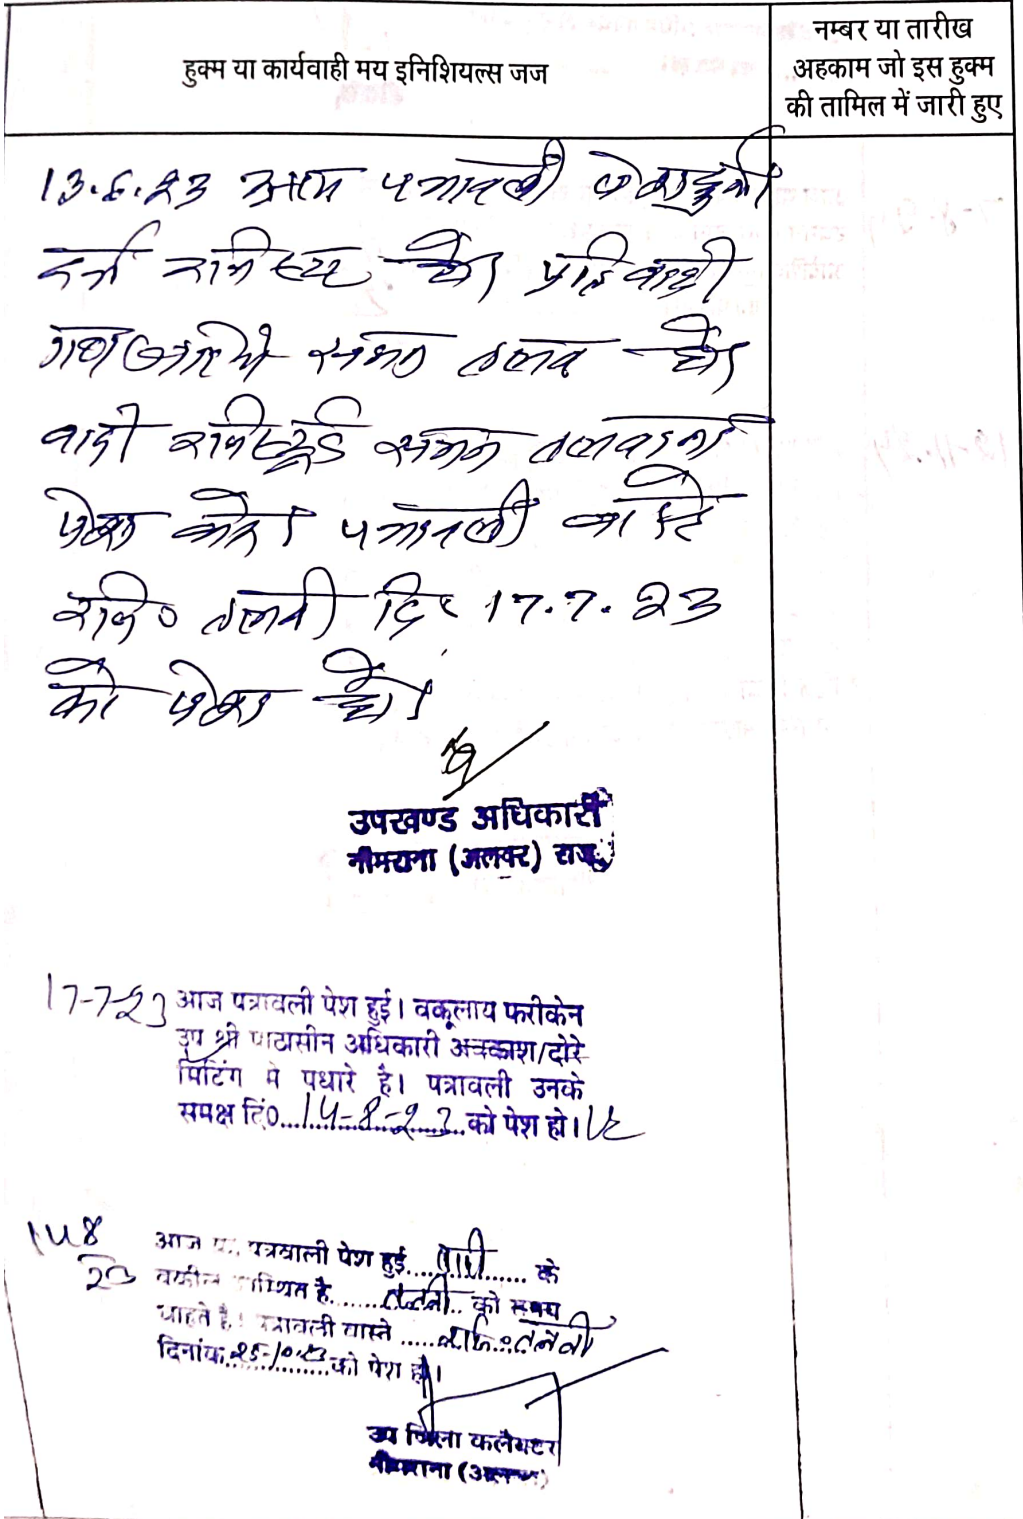 हुक्म या कार्यवाही मय इनिशियल्स जज
नम्बर या तारीख
अहकाम जो इस हुक्म
की तामिल में जारी हुए
13.6.23 आज पत्रावली पेश हुई।
दर्ज रजिस्टर हो। प्रतिवादी
गण जरिये समन तलब हो।
वादी रजिस्टर्ड समन तलवाना
पेश करे। पत्रावली वास्ते
रजि० तलवी दि० 17.7.23
को पेश हो।
उपखण्ड अधिकारी
नीमराना (अलवर) राज०
17-7-23 आज पत्रावली पेश हुई। वकूलाय फरीकेन
उप श्री पीठासीन अधिकारी अवकाश/दोरे
मिटिंग मे पधारे है। पत्रावली उनके
समक्ष दि0...14-8-23...को पेश हो।
14 8
23
आज पत्रावाली पेश हुई...वादी...के
वकील उपस्थित है...तलवी...को समय
चाहते है। पत्रावली वास्ते...रजि० तलवी
दिनांक 25-10-23 को पेश हो।
उप जिला कलैक्टर
नीमराना (अलवर)